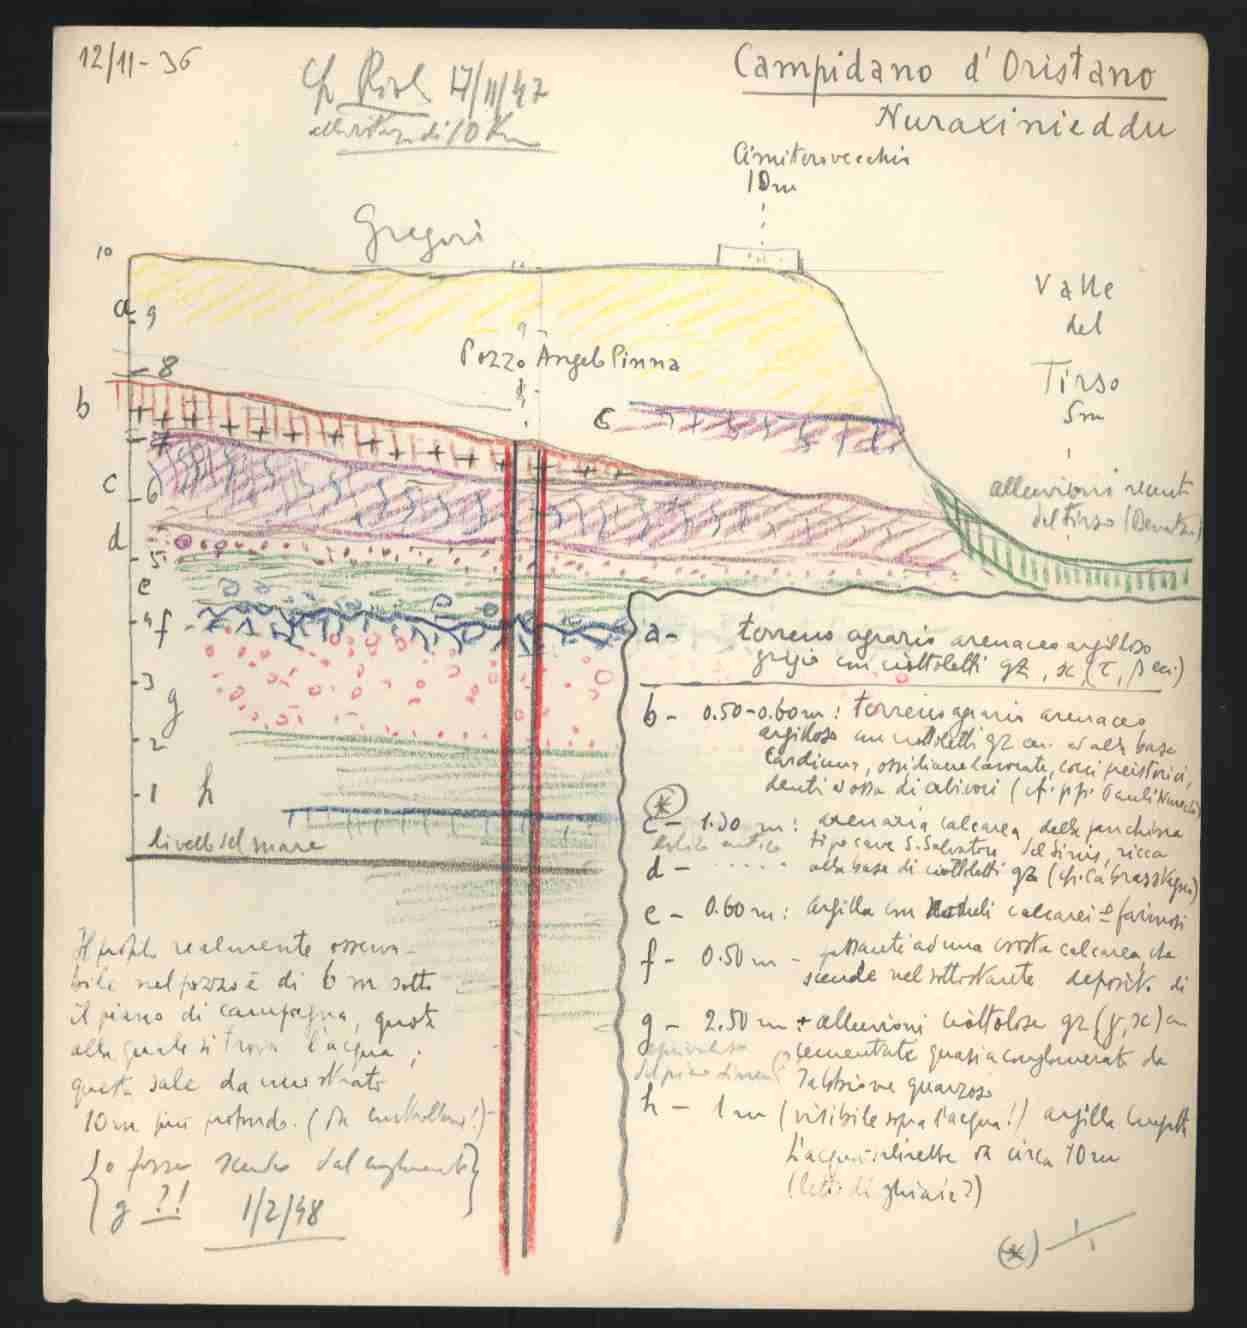 12/11-36
17/11/47
di 10 Km
Campidano d'Oristano
Nuraxinieddu
Cimitero vecchio
10m
Gregori
10
a
9
8
b
7
c
6
d
5
e
4
f
3
g
2
1
h
Pozzo Angelo Pinna
c
Valle
del
Tirso
5m
alluvioni recenti
del Tirso
livello del mare
a- terreno agrario arenaceo argilloso
grigio con ciottoletti qz, x (τ, β ecc)
b- 0.50-0.60m: terreno agrario arenaceo
argilloso con ciottoletti qz alla base
Cardium, ossidiane lavorate, cocci preistorici,
denti ed ossa di
(*)
c- 1.30 m: arenaria calcarea della panchina
eolico antico tipo cave S. Salvatore del Sinis, ricca
d- ..... alla base di ciottoletti qz
e- 0.60m: argilla con noduli calcarei ± farinosi
f- 0.50m - passanti ad una crosta calcarea, che
scende nel sottostante deposito di
g- 2.50m: alluvioni ciottolose qz (γ, x)
cementate quasi a conglomerato da
sabbione quarzoso
h- 1m (visibile sopra l'acqua!) argilla compatta
L'acqua salirebbe da circa 10m
(letto di ghiaie?)
(*)
Il profilo realmente osserva-
bile nel pozzo è di 6 m sotto
il piano di campagna, quota
alla quale si trova l'acqua;
questa sale da uno strato
10m più profondo. (da controllare!)
{o forse scende dal conglomerato}
g ?!
1/2/48